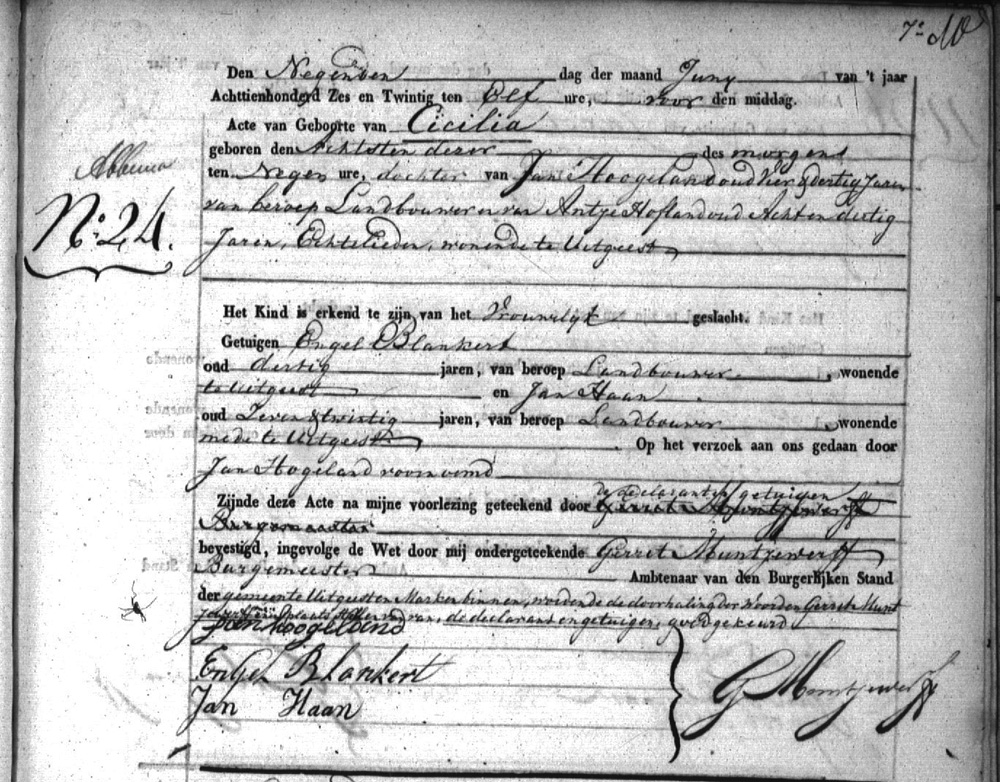 7e
Den Negenden dag der maand Juny van 't jaar
Achttienhonderd Zes en Twintig ten Elf ure, voor den middag.
Acte van Geboorte van Cicilia
geboren den Achtsten dezer des morgens
ten Negen ure, dochter van Jan Hoogeland oud Vier & dertig Jaren
van beroep Landbouwer en van Antje Hofland oud Acht en dertig
Jaren, Echtelieden, wonende te Uitgeest
No. 24.
Het Kind is erkend te zijn van het Vrouwelyk geslacht.
Getuigen Engel Blankert
oud dertig jaren, van beroep Landbouwer, wonende
te Uitgeest en Jan Haan
oud Zeven & twintig jaren, van beroep Landbouwer, wonende
mede te Uitgeest. Op het verzoek aan ons gedaan door
Jan Hogeland voornoemd
de declarant en getuigen
Zijnde deze Acte na mijne voorlezing geteekend door Gerret Muntjewerff
Burgemeester
bevestigd, ingevolge de Wet door mij ondergeteekende Gerret Muntjewerff
Burgemeester Ambtenaar van den Burgerlijken Stand
der gemeente Uitgeest en Markenbinnen, wordende de doorhaling der woorden Gerret Munt
van, de declarant en getuigen, goedgekeurd
Jan hoogeland
Engel Blankert
Jan Haan
G Muntjewerff